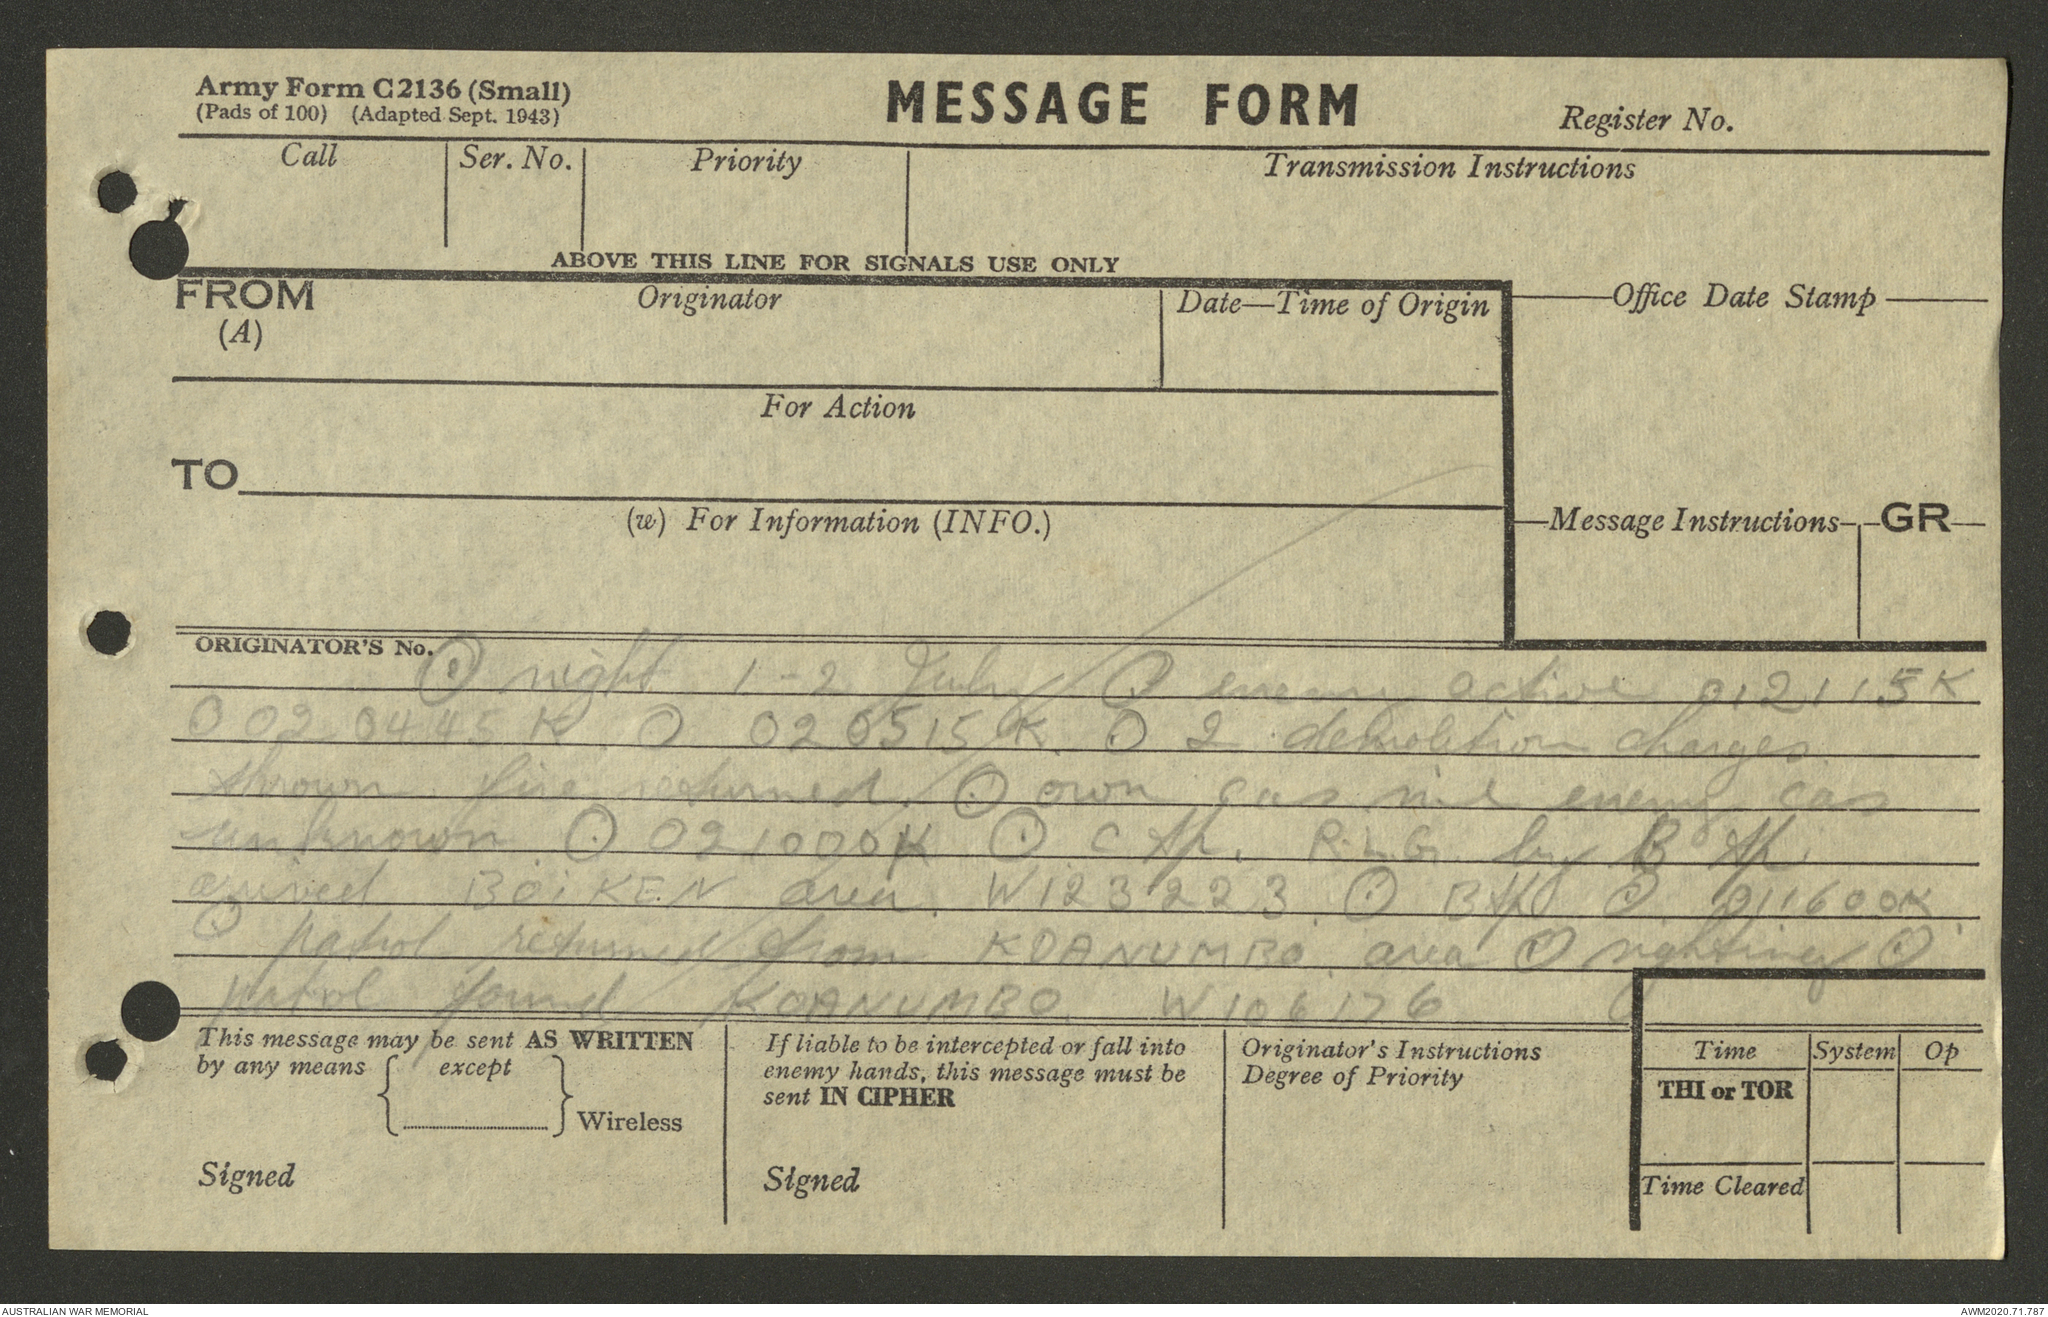 Army Form C2136 (Small)
(Pads of 100) (Adapted Sept. 1943)
MESSAGE FORM
Register No.
Call
Ser. No.
Priority
Transmission Instructions
ABOVE THIS LINE FOR SIGNALS USE ONLY
FROM
(A)
Originator
Date—Time of Origin
Office Date Stamp
For Action
TO
(w) For Information (INFO.)
Message Instructions
GR
ORIGINATOR'S No.
⊙ night 1-2 July ⊙ enemy active 012115K
⊙ 020445K ⊙ 020515K ⊙ 2 demolition charges
thrown fire returned. ⊙ own cas nil enemy cas
unknown ⊙ 021000K ⊙ C Tp. R.L.G. by B Tp.
arrived BOIKEN area W123223 ⊙ B Tp ⊙ 011600K
⊙ patrol returned from KOANUMBO area ⊙ ⊙
patrol found KOANUMBO W106176
This message may be sent AS WRITTEN
by any means
except
Wireless
Signed
If liable to be intercepted or fall into
enemy hands, this message must be
sent IN CIPHER
Signed
Originator's Instructions
Degree of Priority
Time
System
Op
THI or TOR
Time Cleared
AUSTRALIAN WAR MEMORIAL
AWM2020.71.787